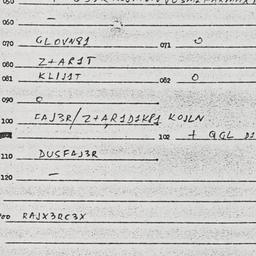 060 —
070 GLOVN81 071 0
080 Z+AR1T
081 KLIJ1T 082 0
090 0
100 FAJ3R/Z+AR1D1K81 KOJLN
102 + GGL D1
110 DUSFAJ3R
120 —
RAJX3RC3X